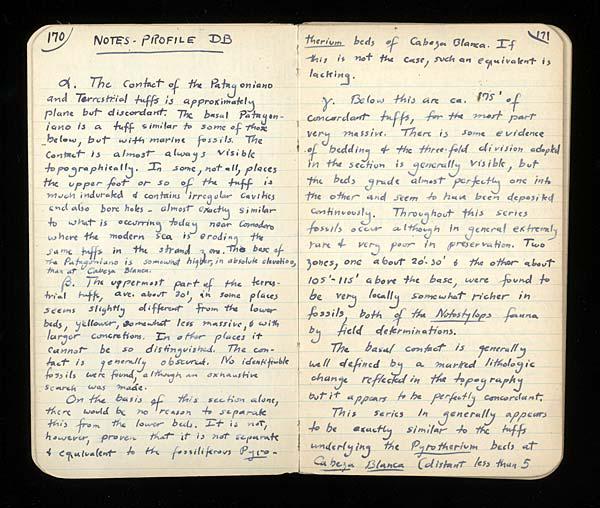 170
NOTES - PROFILE DB
α. The contact of the Patagoniano
and Terrestrial tuffs is approximately
plane but discordant. The basal Patagon-
iano is a tuff similar to some of those
below, but with marine fossils. The
contact is almost always visible
topographically. In some, not all, places
the upper foot or so of the tuff is
much indurated & contains irregular cavities
and also bore holes - almost exactly similar
to what is occurring today near Comodoro
where the modern sea is eroding the
same tuffs in the strand zone. The base of
the Patagoniano is somewhat higher, in absolute elevation,
than at Cabeza Blanca.
β. The uppermost part of the terres-
trial tuffs, ave. about 20', in some places
seems slightly different from the lower
beds, yellower, somewhat less massive, & with
larger concretions. In other places it
cannot be so distinguished. The con-
tact is generally obscured. No identifiable
fossils were found, although an exhaustive
search was made.
On the basis of this section alone,
there would be no reason to separate
this from the lower beds. It is not,
however, proven that it is not separate
& equivalent to the fossiliferous Pyro-
171
therium beds of Cabeza Blanca. If
this is not the case, such an equivalent is
lacking.
γ. Below this are ca. 175' of
concordant tuffs, for the most part
very massive. There is some evidence
of bedding & the three-fold division adopted
in the section is generally visible, but
the beds grade almost perfectly one into
the other and seem to have been deposited
continuously. Throughout this series
fossils occur although in general extremely
rare & very poor in preservation. Two
zones, one about 20'-30' & the other about
105'-115' above the base, were found to
be very locally somewhat richer in
fossils, both of the Notostylops fauna
by field determinations.
The basal contact is generally
well defined by a marked lithologic
change reflected in the topography
but it appears to be perfectly concordant.
This series in generally appears
to be exactly similar to the tuffs
underlying the Pyrotherium beds at
Cabeza Blanca (distant less than 5